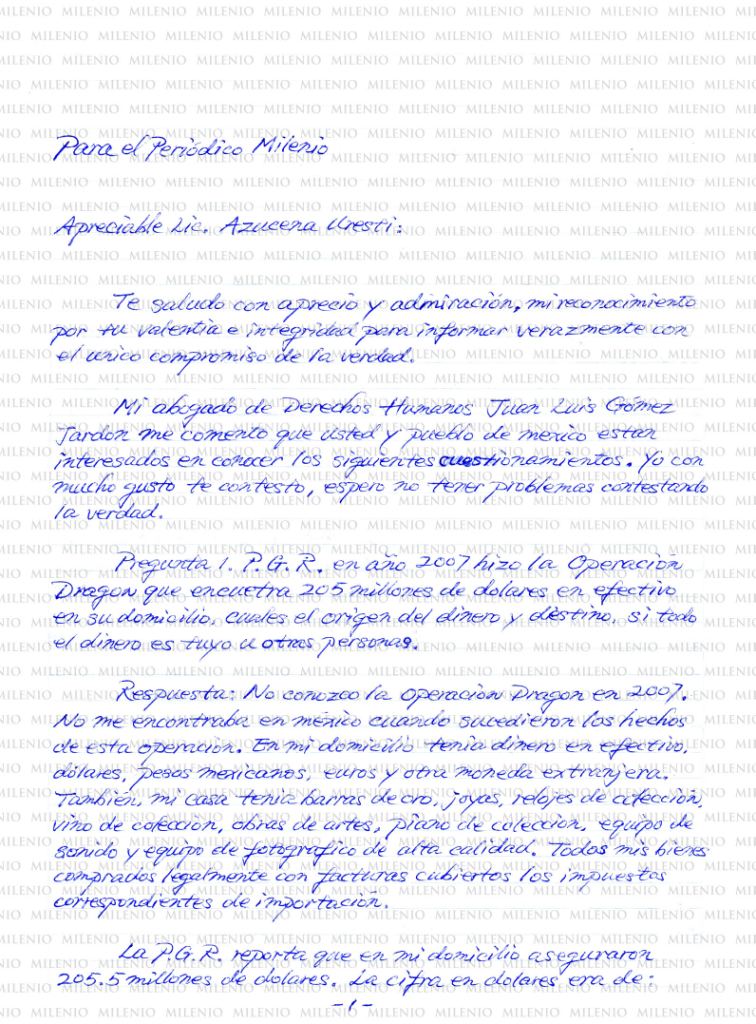 Para el Periódico Milenio
Apreciable Lic. Azucena Uresti:
Te saludo con aprecio y admiración, mi reconocimiento
por tu valentia e integridad para informar verazmente con
el unico compromiso de la verdad.
Mi abogado de Derechos Humanos Juan Luis Gómez
Jardon me comento que usted y pueblo de mexico estan
interesados en conocer los siguientes cuestionamientos. Yo con
mucho gusto te contesto, espero no tener problemas contestando
la verdad.
Pregunta 1. P.G.R. en año 2007 hizo la Operación
Dragon que encuetra 205 millones de dolares en efectivo
en su domicilio, cuales el origen del dinero y destino, si todo
el dinero es tuyo u otras personas.
Respuesta: No conozco la operación Dragon en 2007.
No me encontraba en mexico cuando sucedieron los hechos
de esta operación. En mi domicilio tenia dinero en efectivo,
dólares, pesos mexicanos, euros y otra moneda extranjera.
También, mi casa tenia barras de oro, joyas, relojes de colección,
vino de colección, obras de artes, piano de coleccion, equipo de
sonido y equipo de fotografico de alta calidad. Todos mis bienes
comprados legalmente con facturas cubiertos los impuestos
correspondientes de importación.
La P.G.R. reporta que en mi domicilio aseguraron
205.5 millones de dolares. La cifra en dolares era de:
-1-